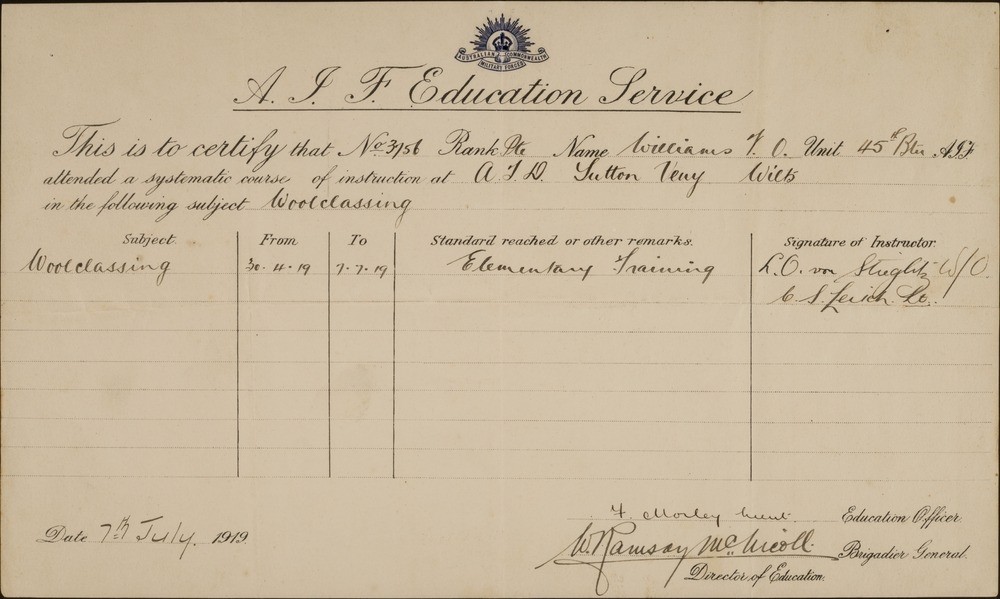 AUSTRALIAN COMMONWEALTH
MILITARY FORCES
A. I. F. Education Service
This is to certify that No 3756 Rank Pte Name Williams F. O. Unit 45th Btn A.I.F
attended a systematic course of instruction at A.I.D. Sutton Veny Wilts
in the following subject Woolclassing
Subject. From To Standard reached or other remarks. Signature of Instructor.
Woolclassing 30.4.19 7.7.19 Elementary Training L.O. von Stieglitz W/O.
C. S.
Date 7th July. 1919
F. Morley Education Officer.
W. Ramsay McNicoll. Brigadier General.
Director of Education.